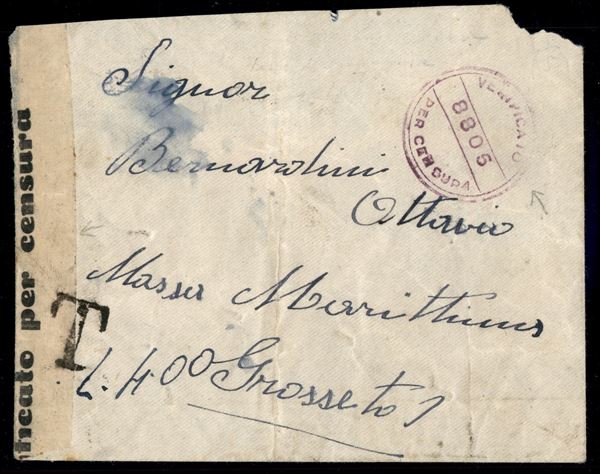 Signor
Bernardini
Ottavio
Massa Marittima
L. 4.00 Grosseto
VERIFICATO
8805
PER CENSURA
ficato per censura
T